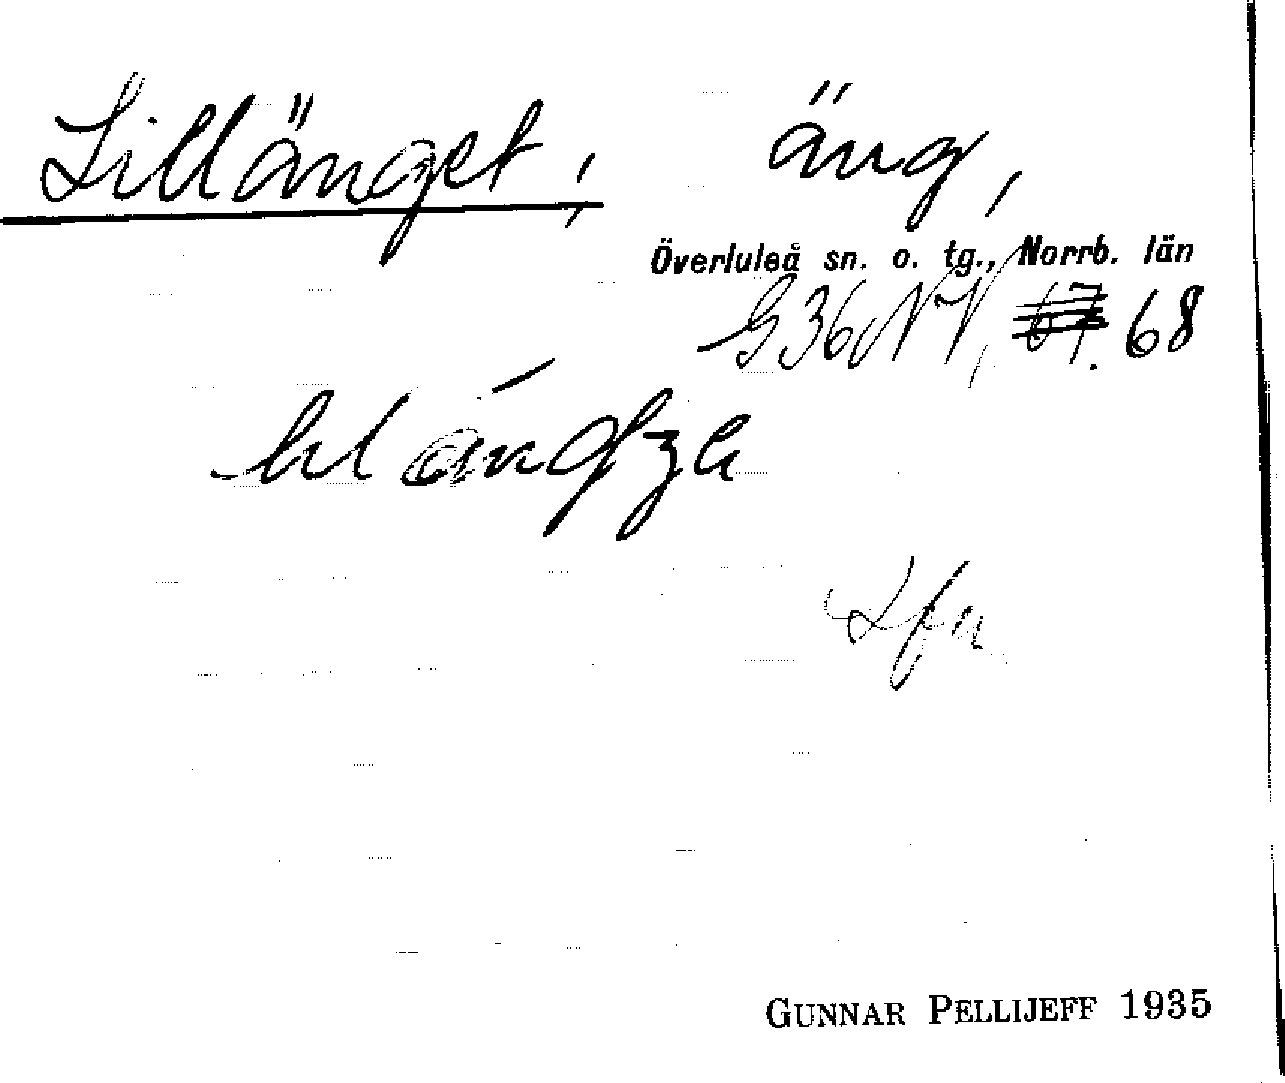 Lillänget, äng,
Överluleå sn. o. tg., Norrb. län
G36NV, 67. 68
GUNNAR PELLIJEFF 1935